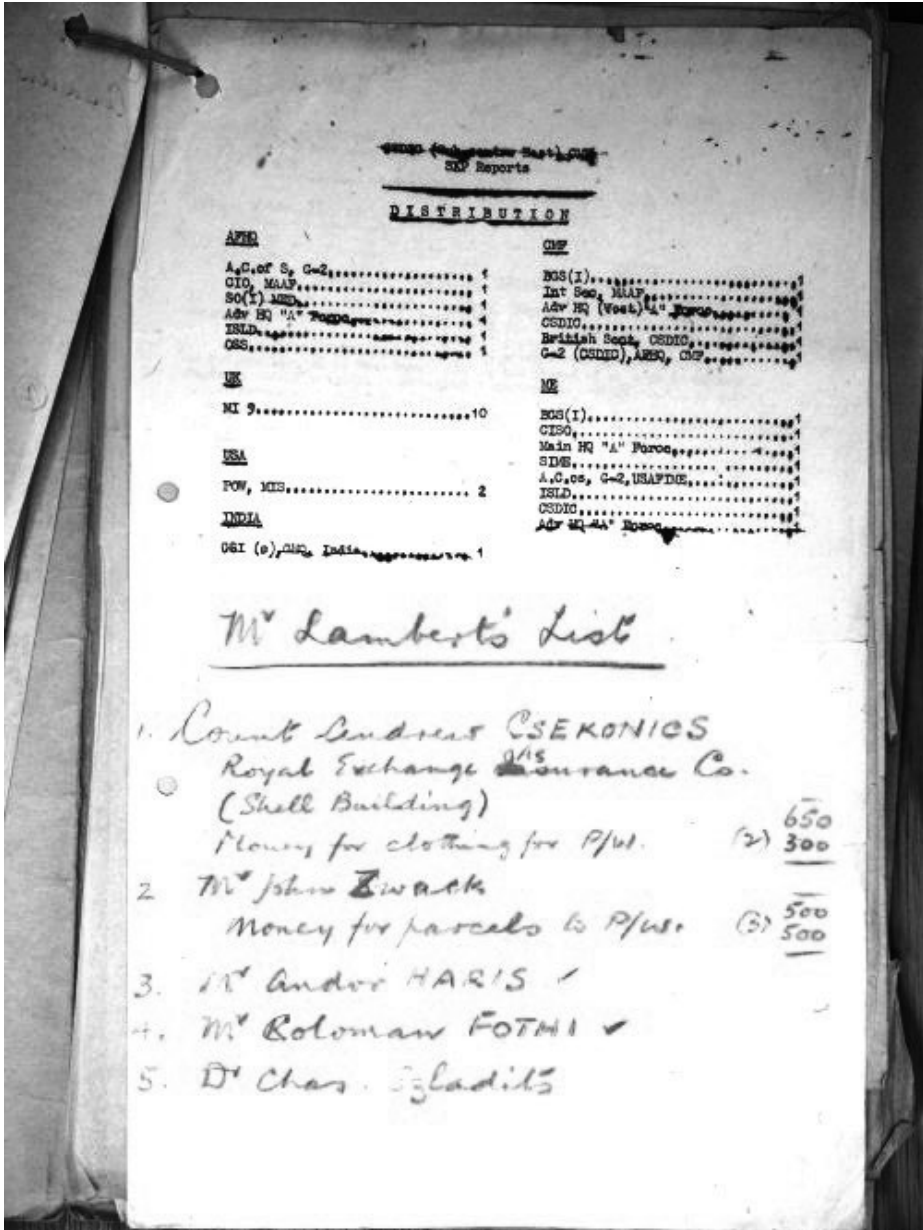 CSDIC (Sub-centre East) CMF
SKP Reports
DISTRIBUTION
AFHQ
A.C.of S, G-2 1
CIO, MAAF 1
SO(I) MED 1
Adv HQ "A" Force 1
ISLD 1
OSS 1
UK
MI 9 10
USA
POW, MIS 2
INDIA
CGI (s), GHQ, India 1
CMF
BGS(I) 1
Int Sec, MAAF 1
Adv HQ (West) "A" Force 1
CSDIC 1
British Sect, CSDIC 1
G-2 (CSDIC), AFHQ, CMF 1
ME
BGS(I) 1
CISO 1
Main HQ "A" Force 1
SIME 1
A.C.os, G-2, USAFIME 1
ISLD 1
CSDIC 1
Adv HQ "A" Force
Mr Lambert's List
1. Count Andrew CSEKONICS
Royal Exchange Assurance Co.
(Shell Building)
650
Money for clothing for P/W. (2) 300
2 Mr John Zwack
500
Money for parcels to P/W. (3) 500
3. Mr Andor HARIS ✓
4. Mr Koloman FOTHI ✓
5. Dr Chas. Szladits